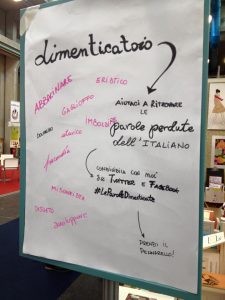 dimenticatoio
ABBACINARE
ERISTICO
GAGLIOFFO
IMBOLSIRE
atavico
facondia
MISONEISTA
DESUETO
AIUTACI A RITROVARE
LE
PAROLE PERDUTE
dell'ITALIANO
CONDIVIDILA CON NOI
SU TWITTER E FACEBOOK
#LeParoleDimenticate
PRENDI IL
PENNARELLO!